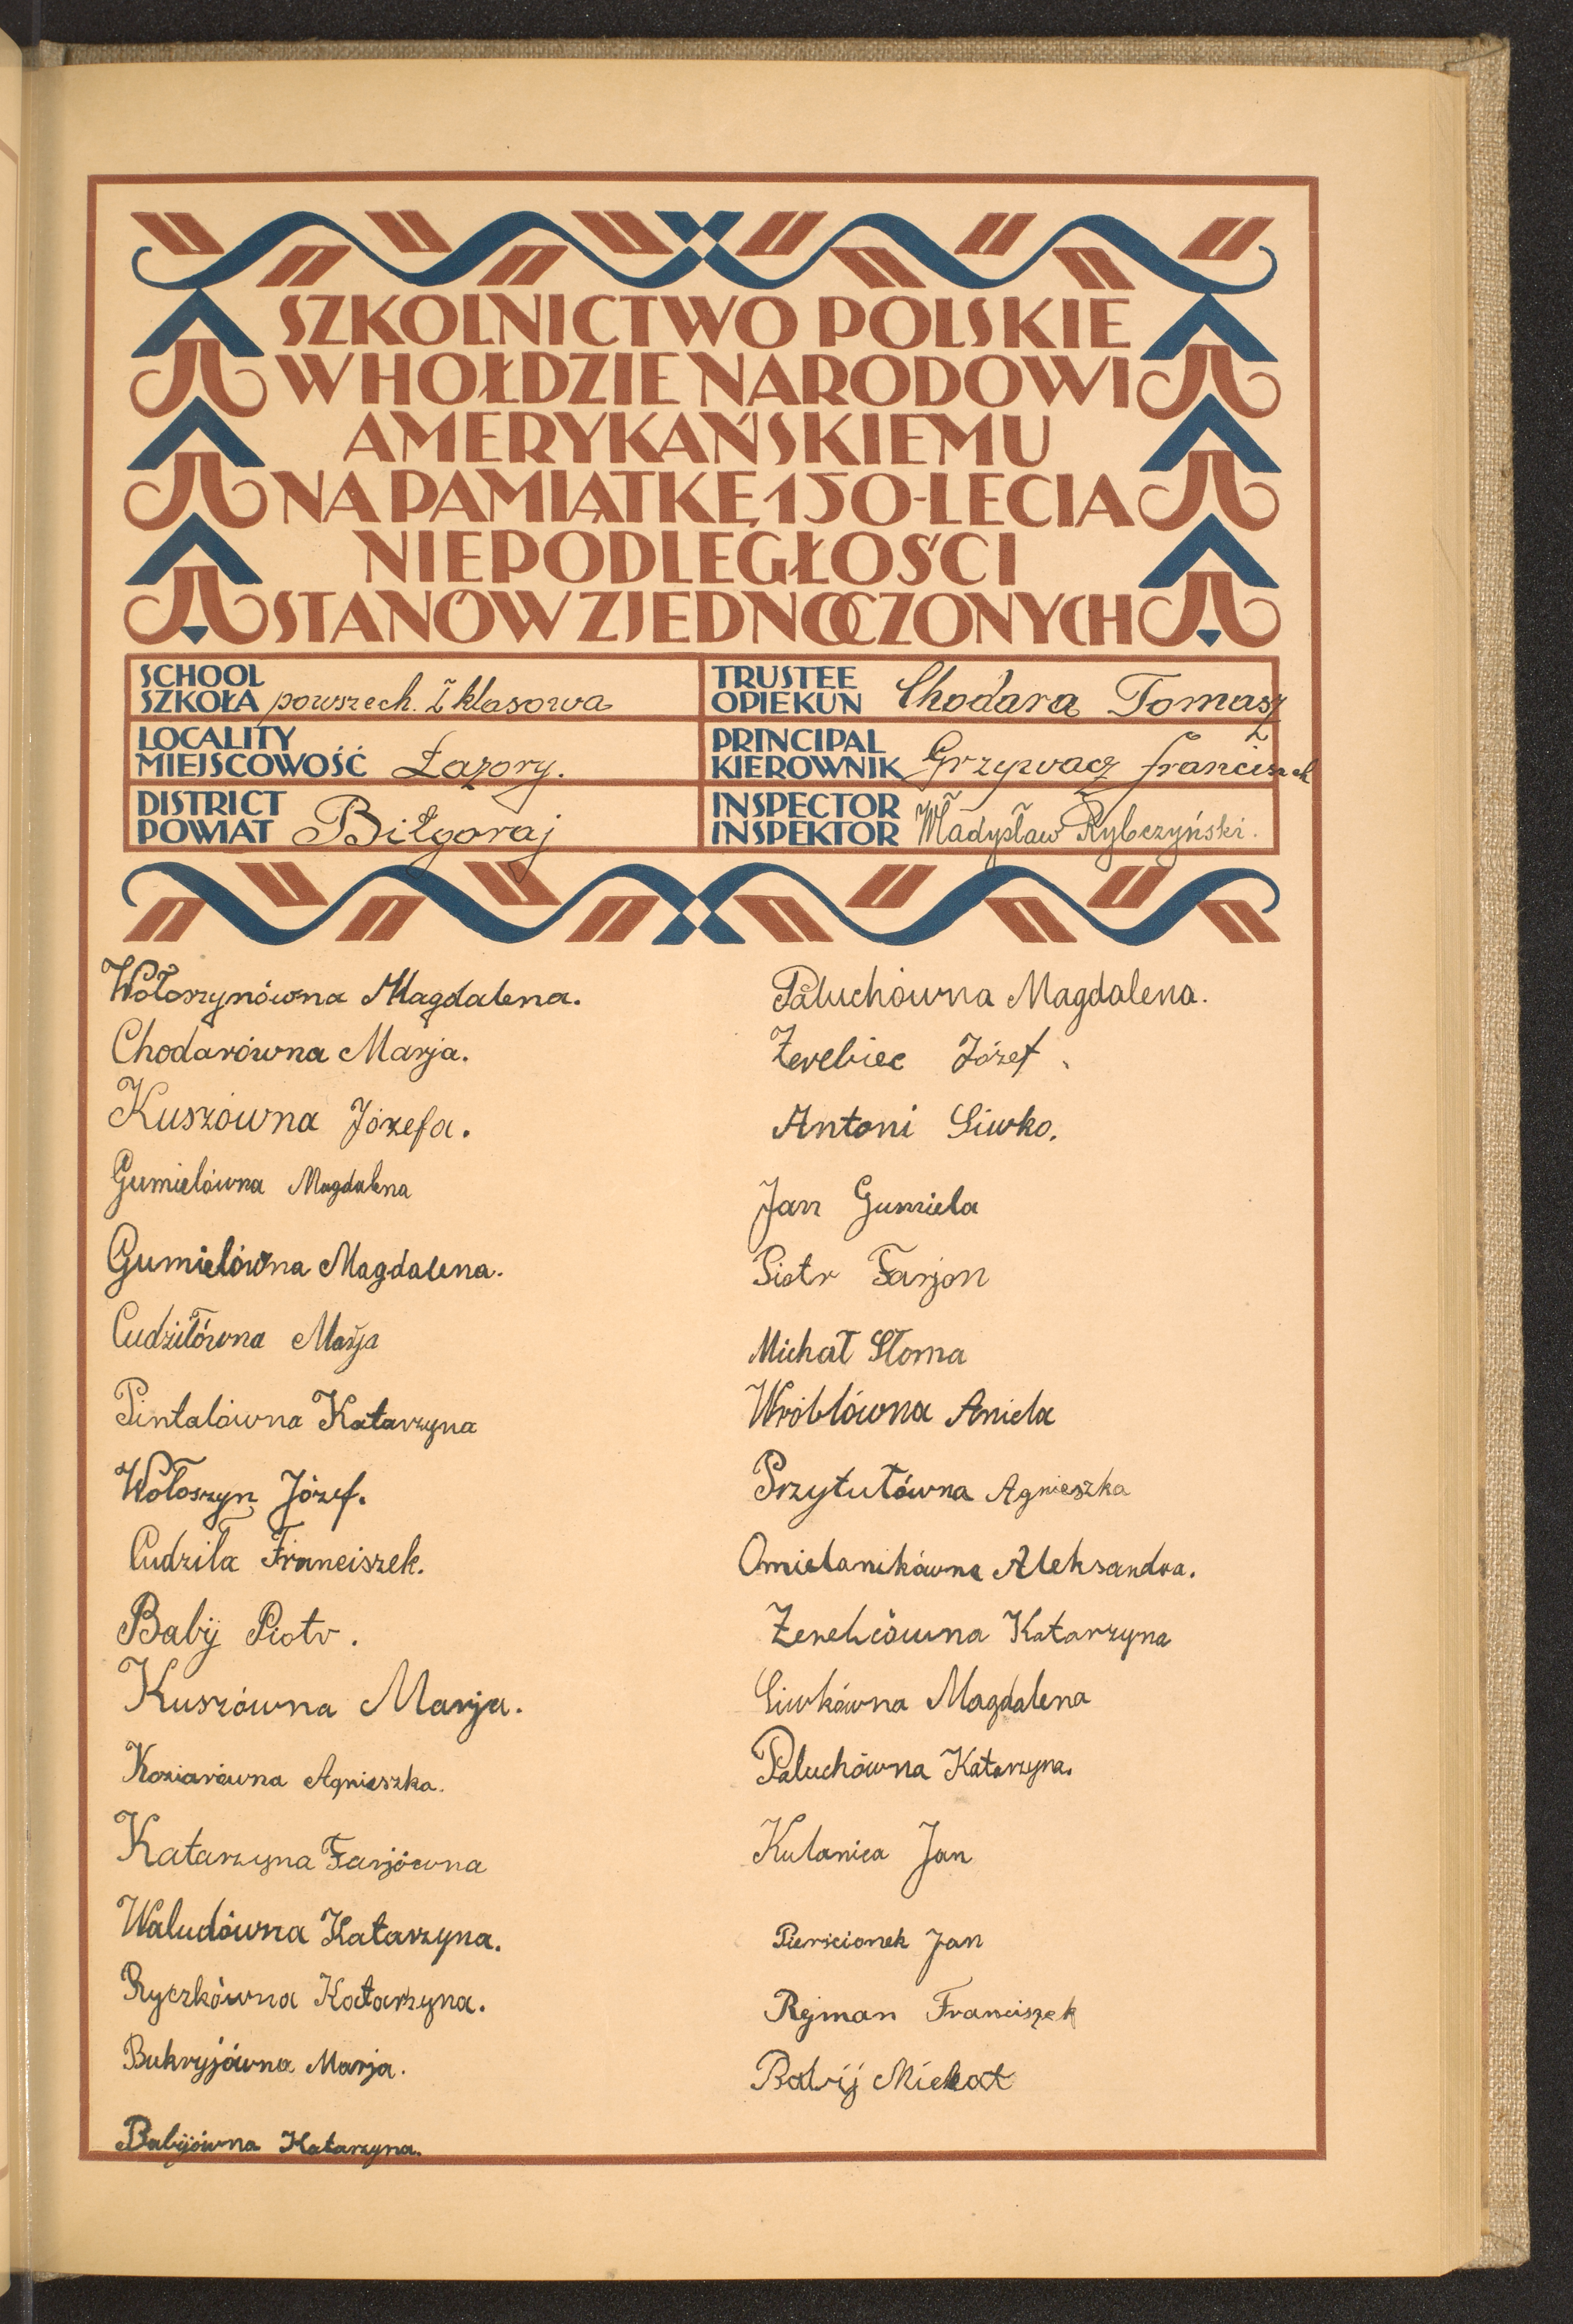 SZKOLNICTWO POLSKIE
W HOŁDZIE NARODOWI
AMERYKAŃSKIEMU
NA PAMIĄTKĘ 150-LECIA
NIEPODLEGŁOŚCI
STANÓW ZJEDNOCZONYCH
SCHOOL
SZKOŁA powszech. 2 klasowa
TRUSTEE
OPIEKUN Chodara Tomasz
LOCALITY
MIEJSCOWOŚĆ Łazory.
PRINCIPAL
KIEROWNIK Grzywacz Franciszek
DISTRICT
POWIAT Biłgoraj
INSPECTOR
INSPEKTOR Władysław Rybczyński.
Wołoszynówna Magdalena.
Chodarówna Marja.
Kuszówna Józefa.
Gumielówna Magdalena
Gumielówna Magdalena.
Cudziłówna Marja
Pintalówna Katarzyna
Wołoszyn Józef.
Cudziła Franciszek.
Babij Piotr.
Kuszówna Marja.
Koziarówna Agnieszka.
Katarzyna Farjówna
Waludówna Katarzyna.
Ryczkówna Katarzyna.
Bukryjówna Marja.
Babijówna Katarzyna.
Paluchówna Magdalena.
Żerebiec Józef.
Antoni Siwko.
Jan Gumiela
Piotr Farjon
Michał Słoma
Wróblówna Aniela
Przytułówna Agnieszka
Omielanikówna Aleksandra.
Katarzyna
Siwkówna Magdalena
Paluchówna Katarzyna.
Kulanica Jan
Pierścionek Jan
Rejman Franciszek
Babij Michał